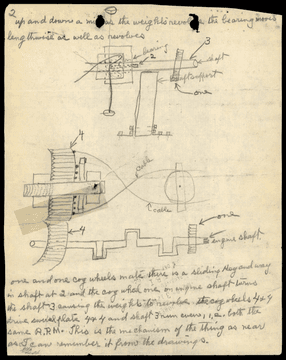 2
up and down a
the weights revolve the bearing moves
lengthwise as well as revolves
bearing
2
3
shaft
shaft support
one
4
cable
cable
4
one
engine shaft
one and one cog wheels mate there is a sliding key and way
in shaft at 2 and the cog wheel one on engine shaft turns
the shaft 3 causing the weights to revolve cog wheels 4 x 4
drive plate 4 x 4 and shaft 3 both the
same R.P.M. This is the mechanism of the thing as near
as I can remember it from the drawings.